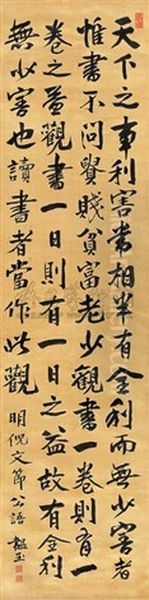 天下之事利害常相半有全利而無少害者
惟書不問貴賤貧富老少觀書一卷則有一
卷之益觀書一日則有一日之益故有全利
無少害也讀書者當作此觀 明倪文節公語 韞玉